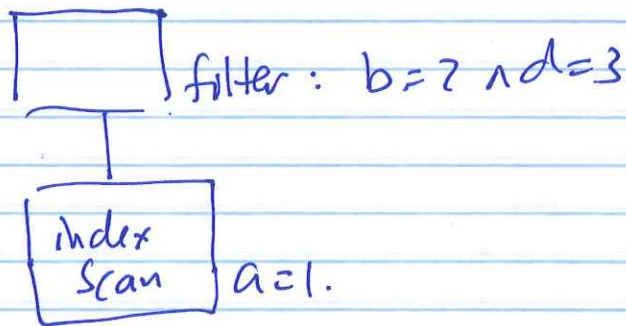 filter: b=2 ∧ d=3
index
scan
a=1.